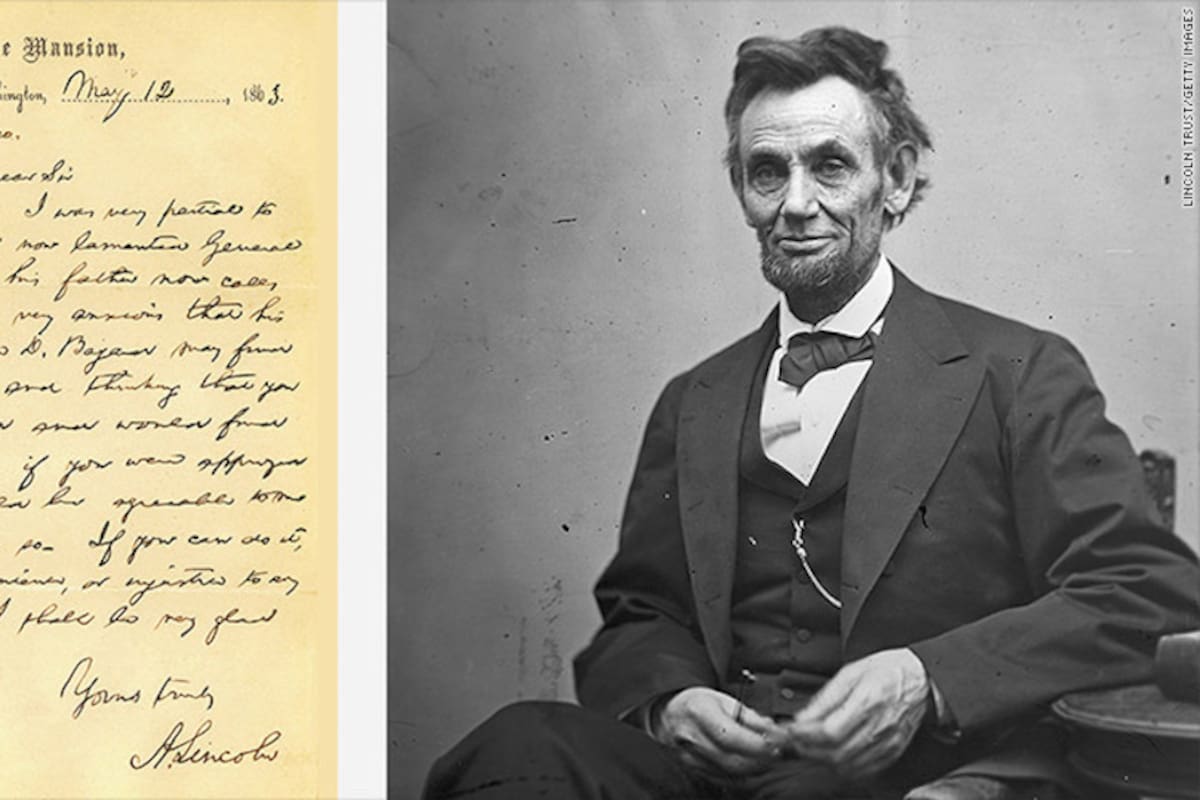 e Mansion,
hington, May 12, 1863.
o.
ear Sir
I was very partial to
now lamented General
his father now calls
very anxious that his
D. Bayard may find
and thinking that you
and would find
if you were apprized
be agreeable to me
so— If you can do it,
nience, or injustice to any
I shall be very glad
Yours truly
A. Lincoln
LINCOLN TRUST/GETTY IMAGES